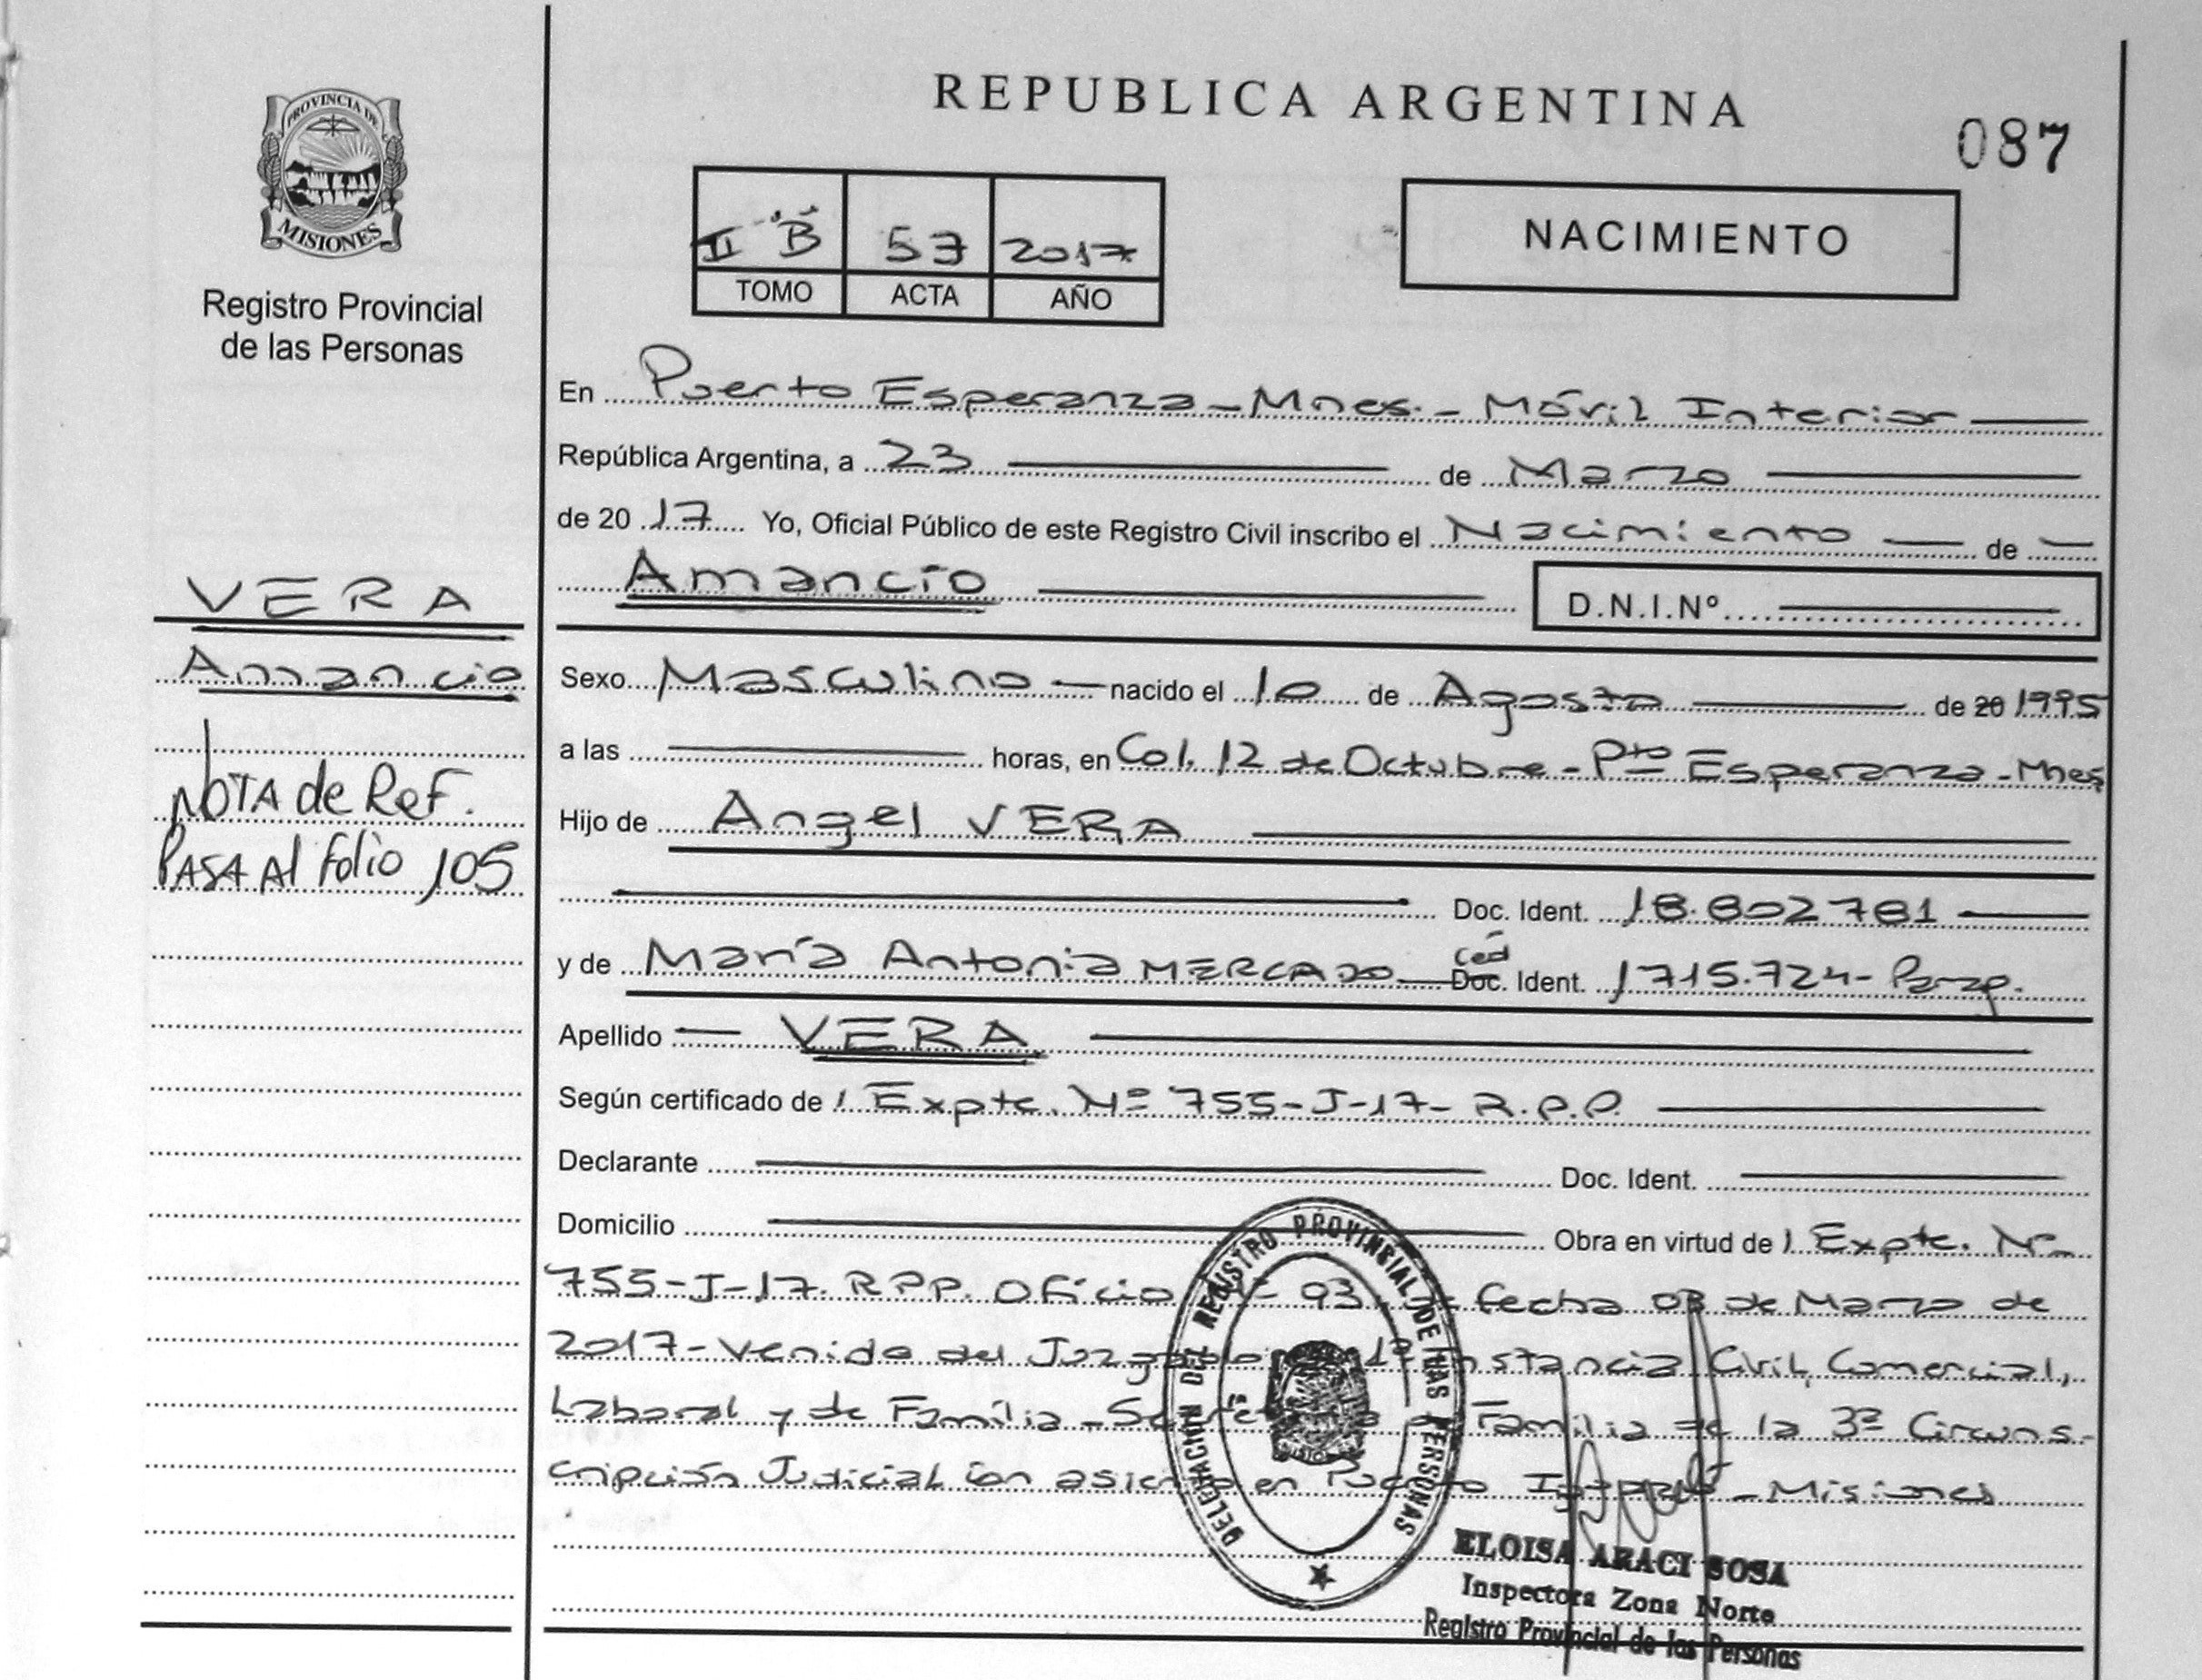 REPUBLICA ARGENTINA
087
PROVINCIA DE
MISIONES
Registro Provincial
de las Personas
II "B" 57 2017
TOMO ACTA AÑO
NACIMIENTO
En Puerto Esperanza - Mnes. - Móvil Interior
República Argentina, a 23 de Marzo
de 2017 Yo, Oficial Público de este Registro Civil inscribo el Nacimiento de
Amancio D.N.I.Nº
VERA
Amancio
NOTA de ReF.
PASA Al folio 105
Sexo Masculino nacido el 10 de Agosto de 20 1995
a las horas, en Col. 12 de Octubre - Pto Esperanza - Mnes
Hijo de Angel VERA
Doc. Ident. 18.802781
y de María Antonia MERCADO Ced Doc. Ident. 1715.724 -
Apellido VERA
Según certificado de / Expte. Nº 755-J-17- R.P.P.
Declarante Doc. Ident.
Domicilio Obra en virtud de / Expte. Nº
755-J-17. RPP. Oficio 93 fecha 08 de Marzo de
2017 - Venido del Juzgado 1ª Instancia Civil, Comercial,
Laboral y de Familia - Familia de la 3ª Circuns-
cripción Judicial con asiento en Puerto - Misiones
DELEGACION DEL REGISTRO PROVINCIAL DE LAS PERSONAS
ELOISA ARACI SOSA
Inspectora Zona Norte
Registro Provincial de las Personas